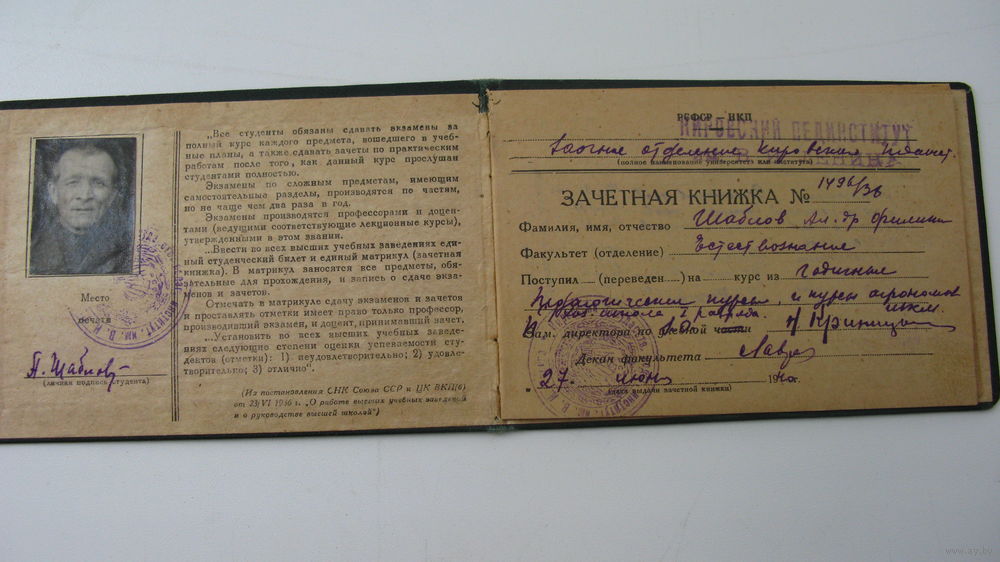 „Все студенты обязаны сдавать экзамены за
полный курс каждого предмета, вошедшего в учеб-
ные планы, а также сдавать зачеты по практическим
работам после того, как данный курс прослушан
студентами полностью.
Экзамены по сложным предметам, имеющим
самостоятельные разделы, производятся по частям,
но не чаще чем два раза в год.
Экзамены производятся профессорами и доцен-
тами (ведущими соответствующие лекционные курсы),
утвержденными в этом звании.
„Ввести во всех высших учебных заведениях еди-
ный студенческий билет и единый матрикул (зачетная
книжка). В матрикул заносятся все предметы, обя-
зательные для прохождения, и запись о сдаче экза-
менов и зачетов.
Отмечать в матрикуле сдачу экзаменов и зачетов
и проставлять отметки имеет право только профессор,
производивший экзамен, и доцент, принимавший зачет.
„Установить во всех высших учебных заведе-
ниях следующие степени оценки успеваемости сту-
дентов (отметки): 1) неудовлетворительно; 2) удовле-
творительно; 3) отлично".
(Из постановления СНК Союза ССР и ЦК ВКП(б)
от 23/VI 1936 г. „О работе высших учебных заведений
и о руководстве высшей школой")
Место
печати
А. Шабалов
(личная подпись студента)
РСФСР — НКП
КИРОВСКИЙ ПЕДИНСТИТУТ
Заочное отделение
(полное наименование университета или института)
ЗАЧЕТНАЯ КНИЖКА № 1496/36
Фамилия, имя, отчество
Факультет (отделение) Естествознание
Поступил (переведен) на курс из годичных
Педагогические курсы, и курсы агрономов
Зам. директора по учебной части
Декан факультета
27. июня 1940г.
(дата выдачи зачетной книжки)
www.ay.by